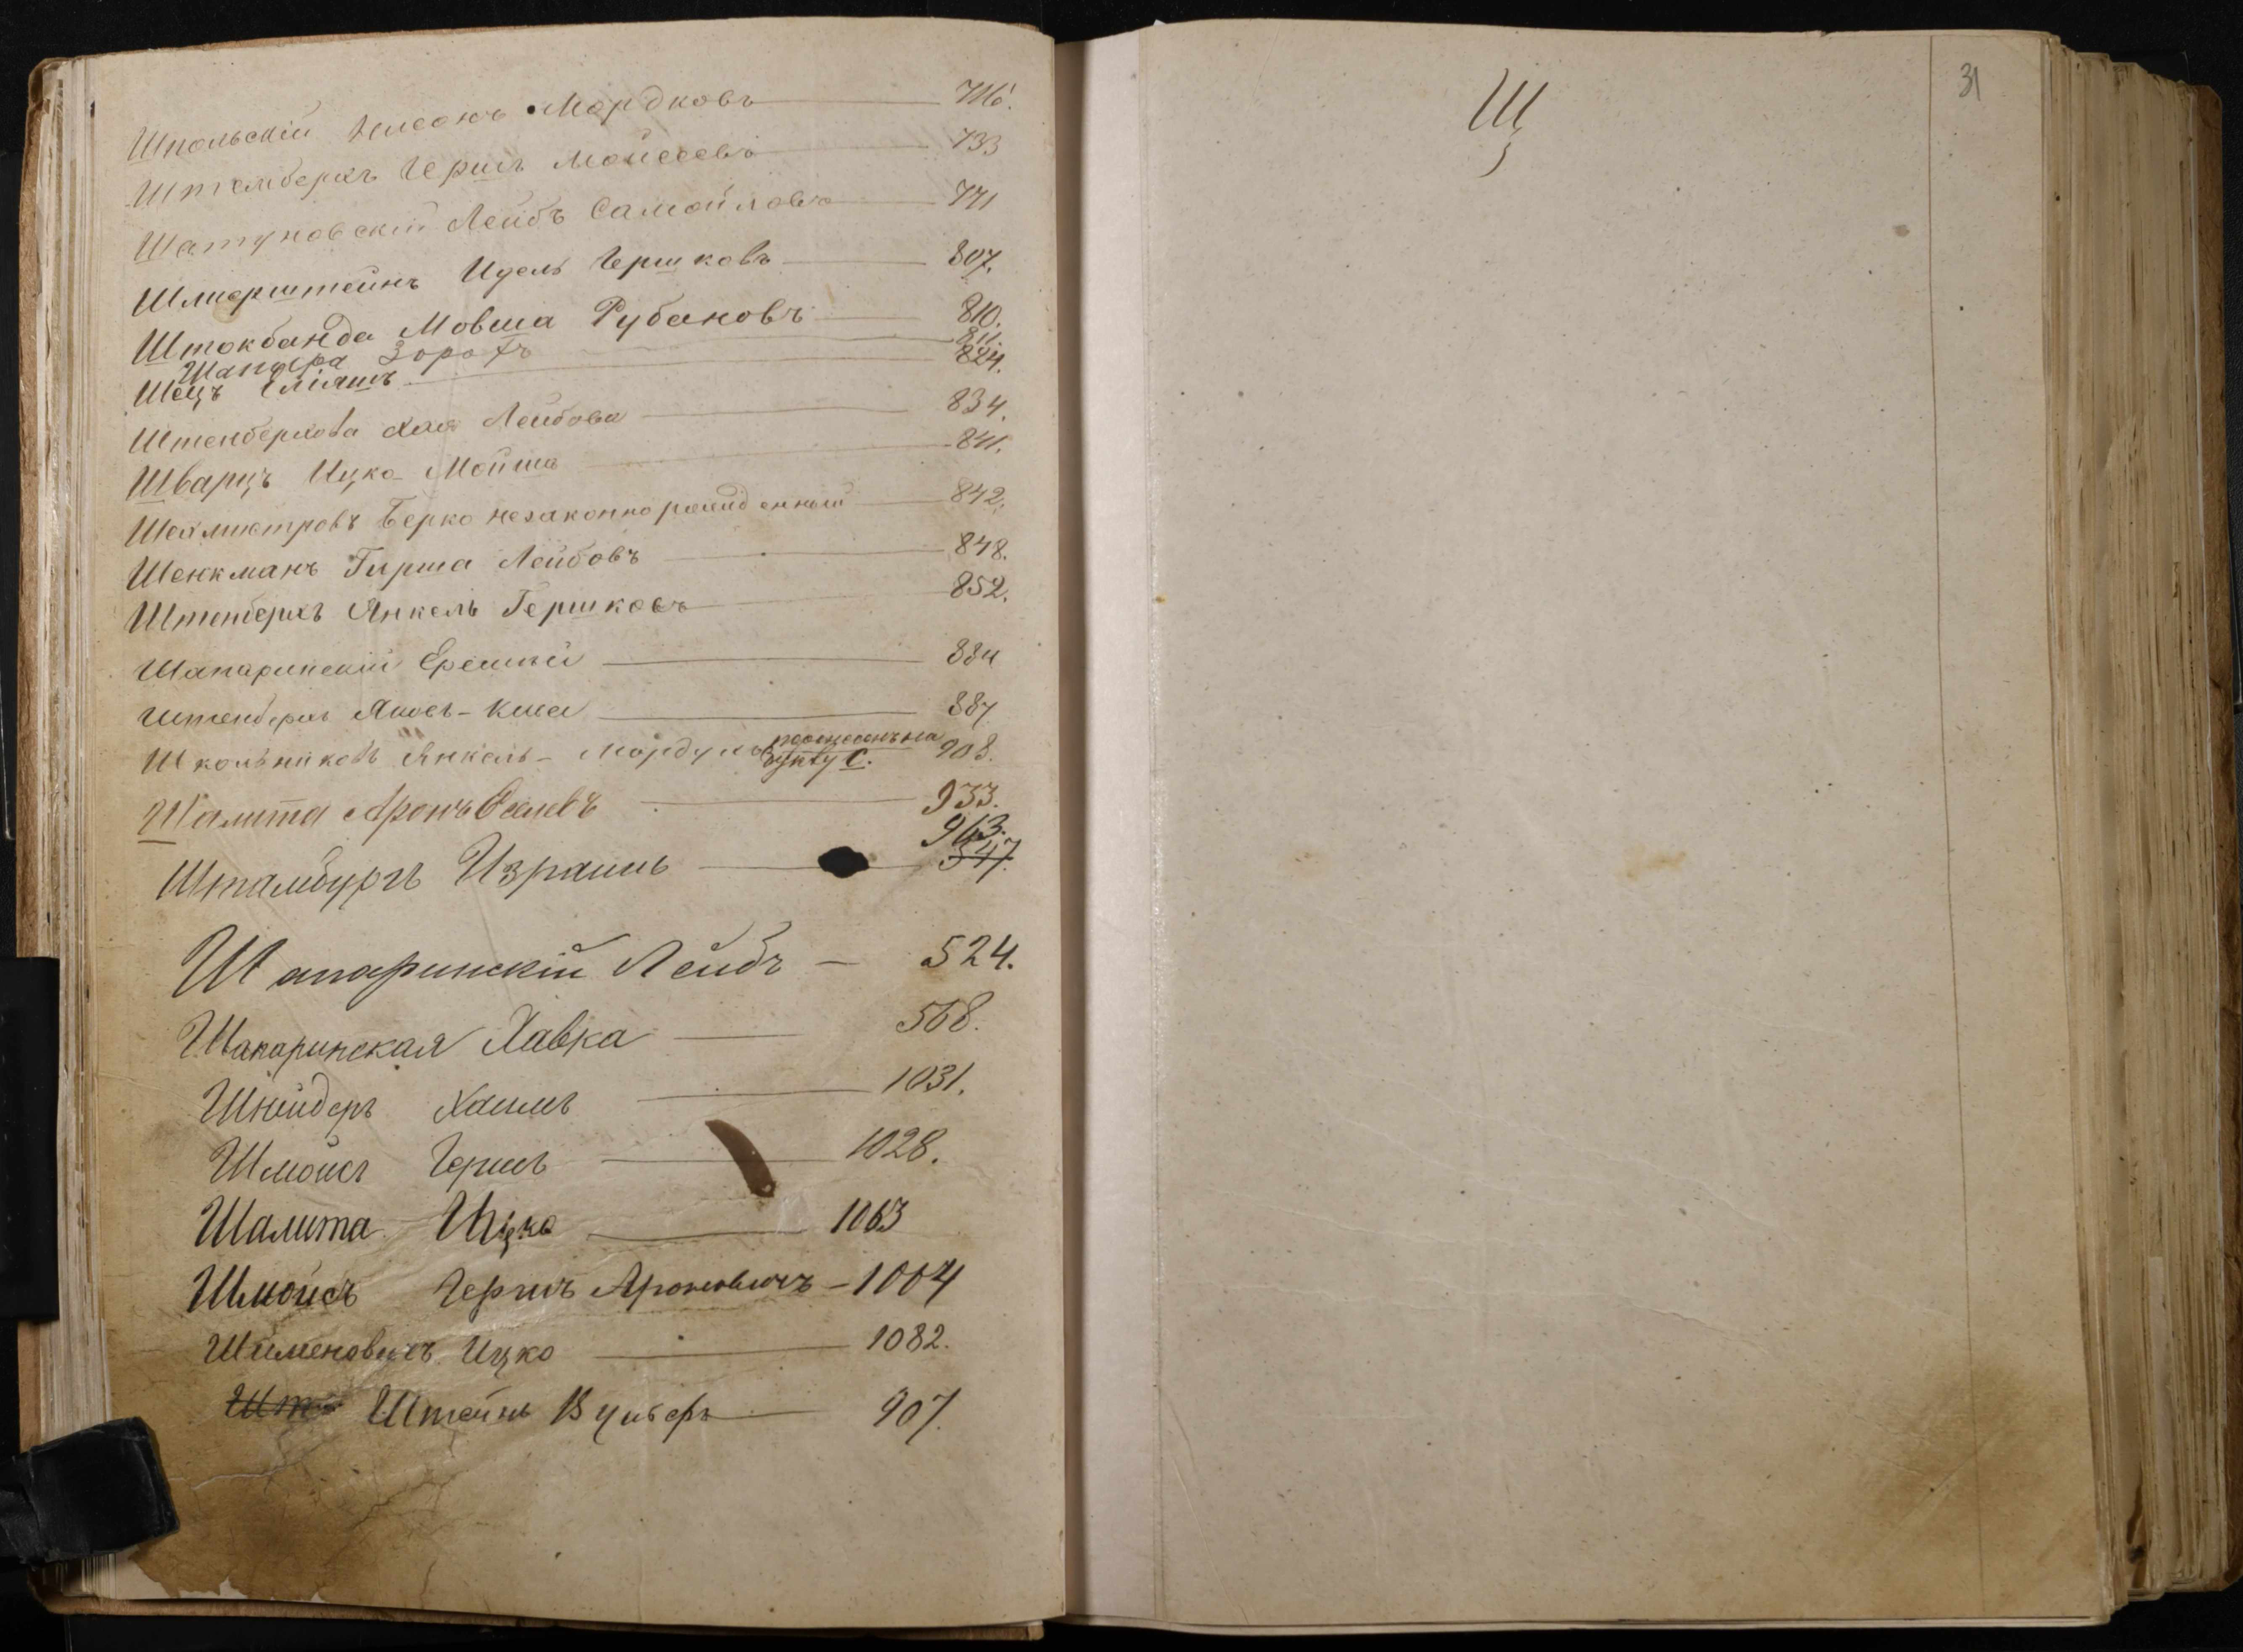 Шпольскій Нисонъ Мордковъ 716.
Штемберхъ Гершъ Мойсеевъ 733
Шатуновскій Лейбъ Самойловъ 771
Идель Гершковъ 807.
Штокбанда Мовша Рубановъ 810.
Шапира Зорохъ 811.
Шецъ 824.
Штенберхова Хая Лейбова 834.
Шварцъ Ицко Мойша 841.
Берко незаконнорожденный 842.
Шенкманъ Гирша Лейбовъ 848.
Штенберхъ Янкель Гершковъ 852.
Шапаринскій 884
Штенберхъ 887
Школьниковъ Янкель-Мордухъ 908.
букву С.
Шалита Аронъ 933.
963.
Штамбургъ Израиль 547.
Шапаринскій Лейбъ — 524.
Шапаринская Хавка 568.
Шнейдеръ Хаимъ 1031.
Шмойсъ Гершъ 1028.
Шалита Ицко 1063
Шмойсъ Гершъ Ароновичъ — 1004
Шименовичъ Ицко 1082.
Шт Штейнъ Вульфъ 907.
Щ
31